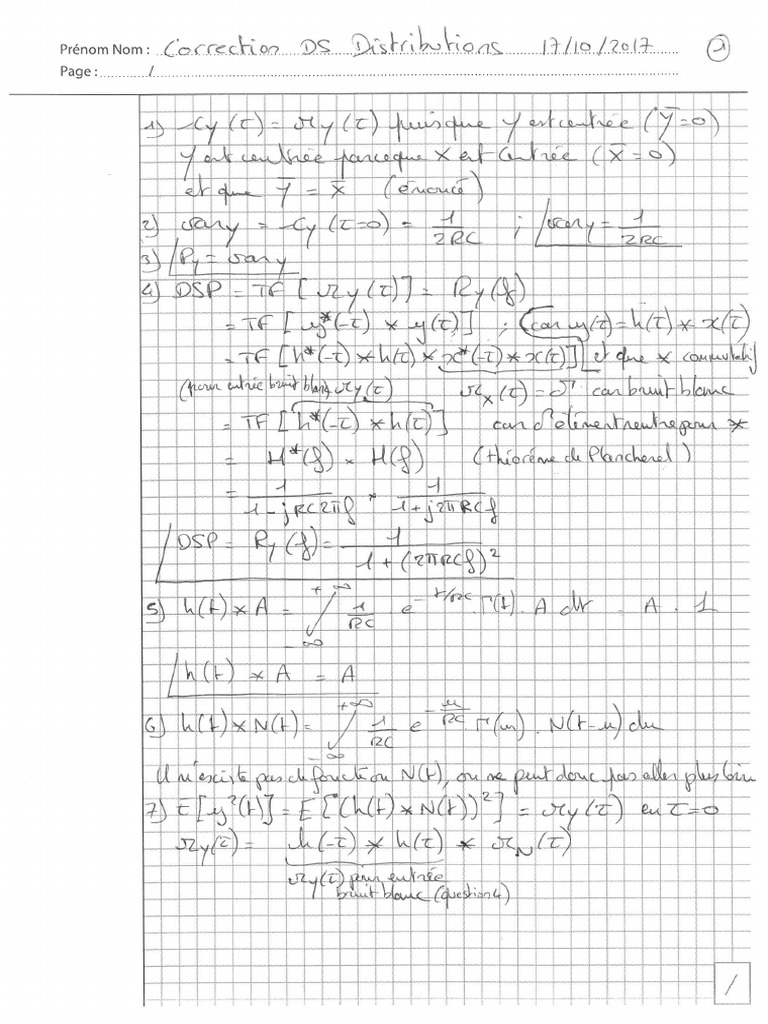 Prénom Nom : Correction DS Distributions 17/10/2017 ①
Page : 1
1) Cy(τ) = ry(τ) puisque Y est centrée (Y̅=0)
Y est centrée parce que X est centrée (X̅=0)
et que Y̅ = X̅ (énoncé)
2) var y = Cy(τ=0) = 1/2RC ; var y = 1/2RC
3) Py = var y
4) DSP = TF[ry(τ)] = Ry(f)
= TF[y*(-τ) * y(τ)] ; car y(τ) = h(τ) * x(τ)
= TF[h*(-τ) * h(τ) * x*(-τ) * x(τ)] et que * commutatif
(pour entrée bruit blanc, ry(τ) rx(τ) = δ car bruit blanc
= TF[h*(-τ) * h(τ)] car δ élément neutre pour *
= H*(f) × H(f) (théorème de Plancherel)
= 1/(1-jRC2πf) × 1/(1+j2πRCf)
DSP = Ry(f) = 1/(1+(2πRCf)²)
5) h(t) * A = ∫_{-∞}^{+∞} 1/RC e^{-t/RC} Γ(t) . A dt = A . 1
h(t) * A = A
6) h(t) * N(t) = ∫_{-∞}^{+∞} 1/RC e^{-u/RC} Γ(u) . N(t-u) du
Il n'existe pas de fonction N(t), on ne peut donc pas aller plus loin
7) E[y²(t)] = E[(h(t) * N(t))²] = ry(τ) en τ=0
ry(τ) = h(-τ) * h(τ) * rN(τ)
ry(τ) pour entrée
bruit blanc (question 4)
1